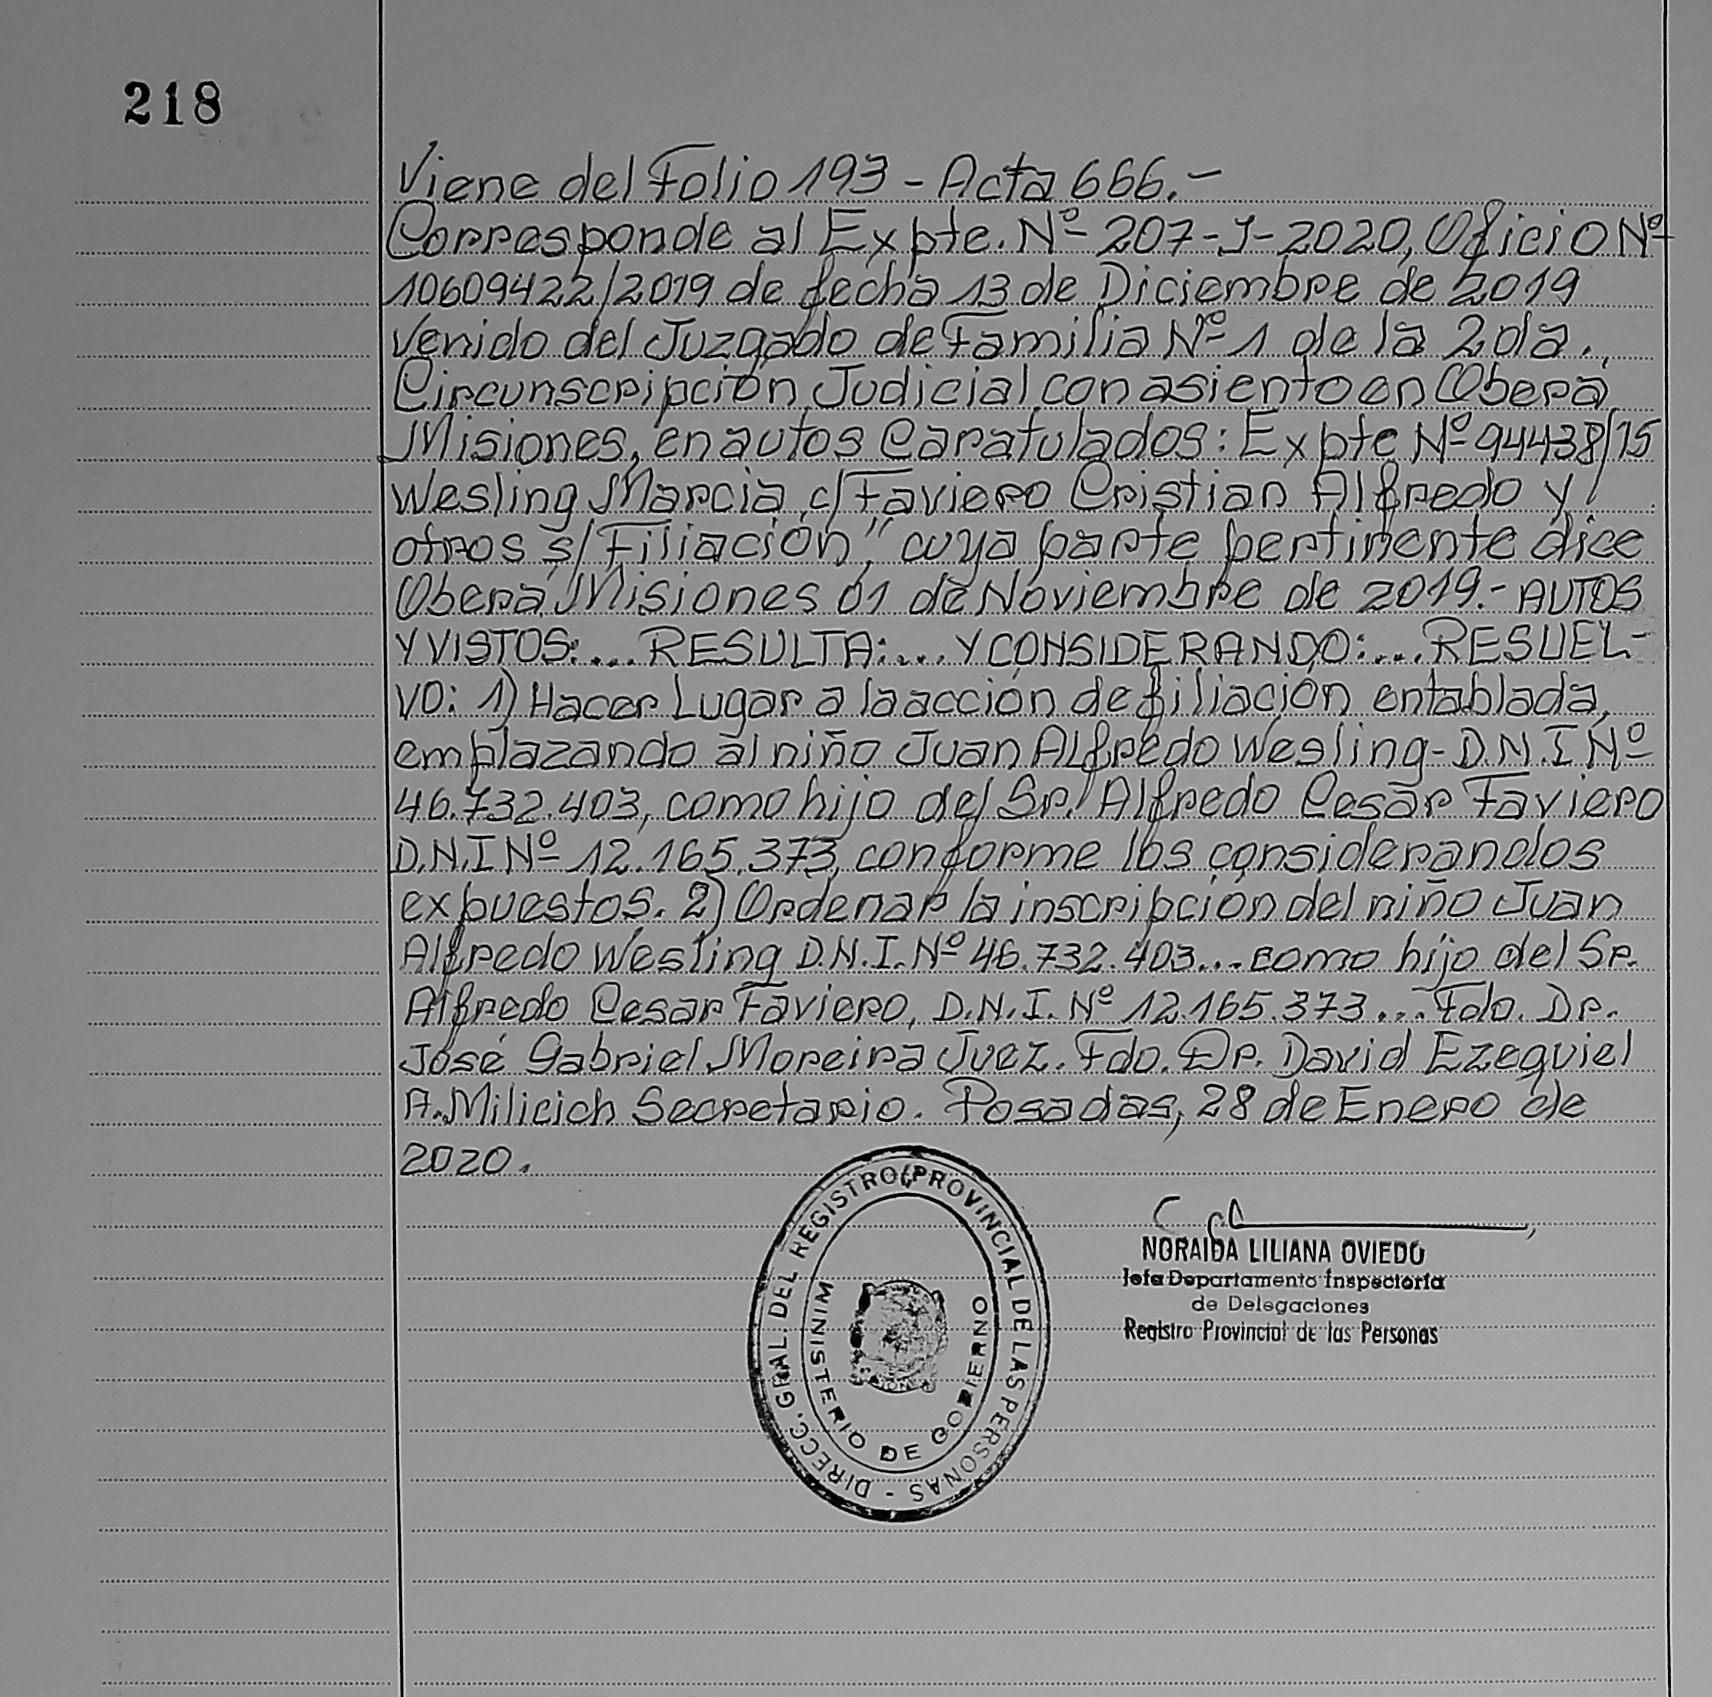 218
Viene del Folio 193 - Acta 666.-
Corresponde al Expte. Nº 207-J-2020, Oficio Nº
10609422/2019 de fecha 13 de Diciembre de 2019
venido del Juzgado de Familia Nº 1 de la 2da.
Circunscripción Judicial con asiento en Oberá
Misiones, en autos Caratulados: Expte Nº 94438/15
Wesling Marcia c/ Faviero Cristian Alfredo y
otros s/ Filiación", cuya parte pertinente dice
Oberá, Misiones 01 de Noviembre de 2019.- AUTOS
Y VISTOS:... RESULTA:... Y CONSIDERANDO:... RESUEL-
VO: 1) Hacer Lugar a la acción de filiación entablada,
emplazando al niño Juan Alfredo Wesling- D.N.I Nº
46.732.403, como hijo del Sr. Alfredo Cesar Faviero
D.N.I Nº 12.165.373, conforme los considerandos
expuestos. 2) Ordenar la inscripción del niño Juan
Alfredo Wesling D.N.I. Nº 46.732.403... como hijo del Sr.
Alfredo Cesar Faviero, D.N.I. Nº 12.165.373... Fdo. Dr.
José Gabriel Moreira Juez. Fdo. Dr. David Ezequiel
A. Milicich Secretario. Posadas, 28 de Enero de
2020.
DIRECC. GRAL. DEL REGISTRO PROVINCIAL DE LAS PERSONAS -
MINISTERIO DE GOBIERNO
NORAIDA LILIANA OVIEDO
Jefa Departamento Inspectoria
de Delegaciones
Registro Provincial de las Personas